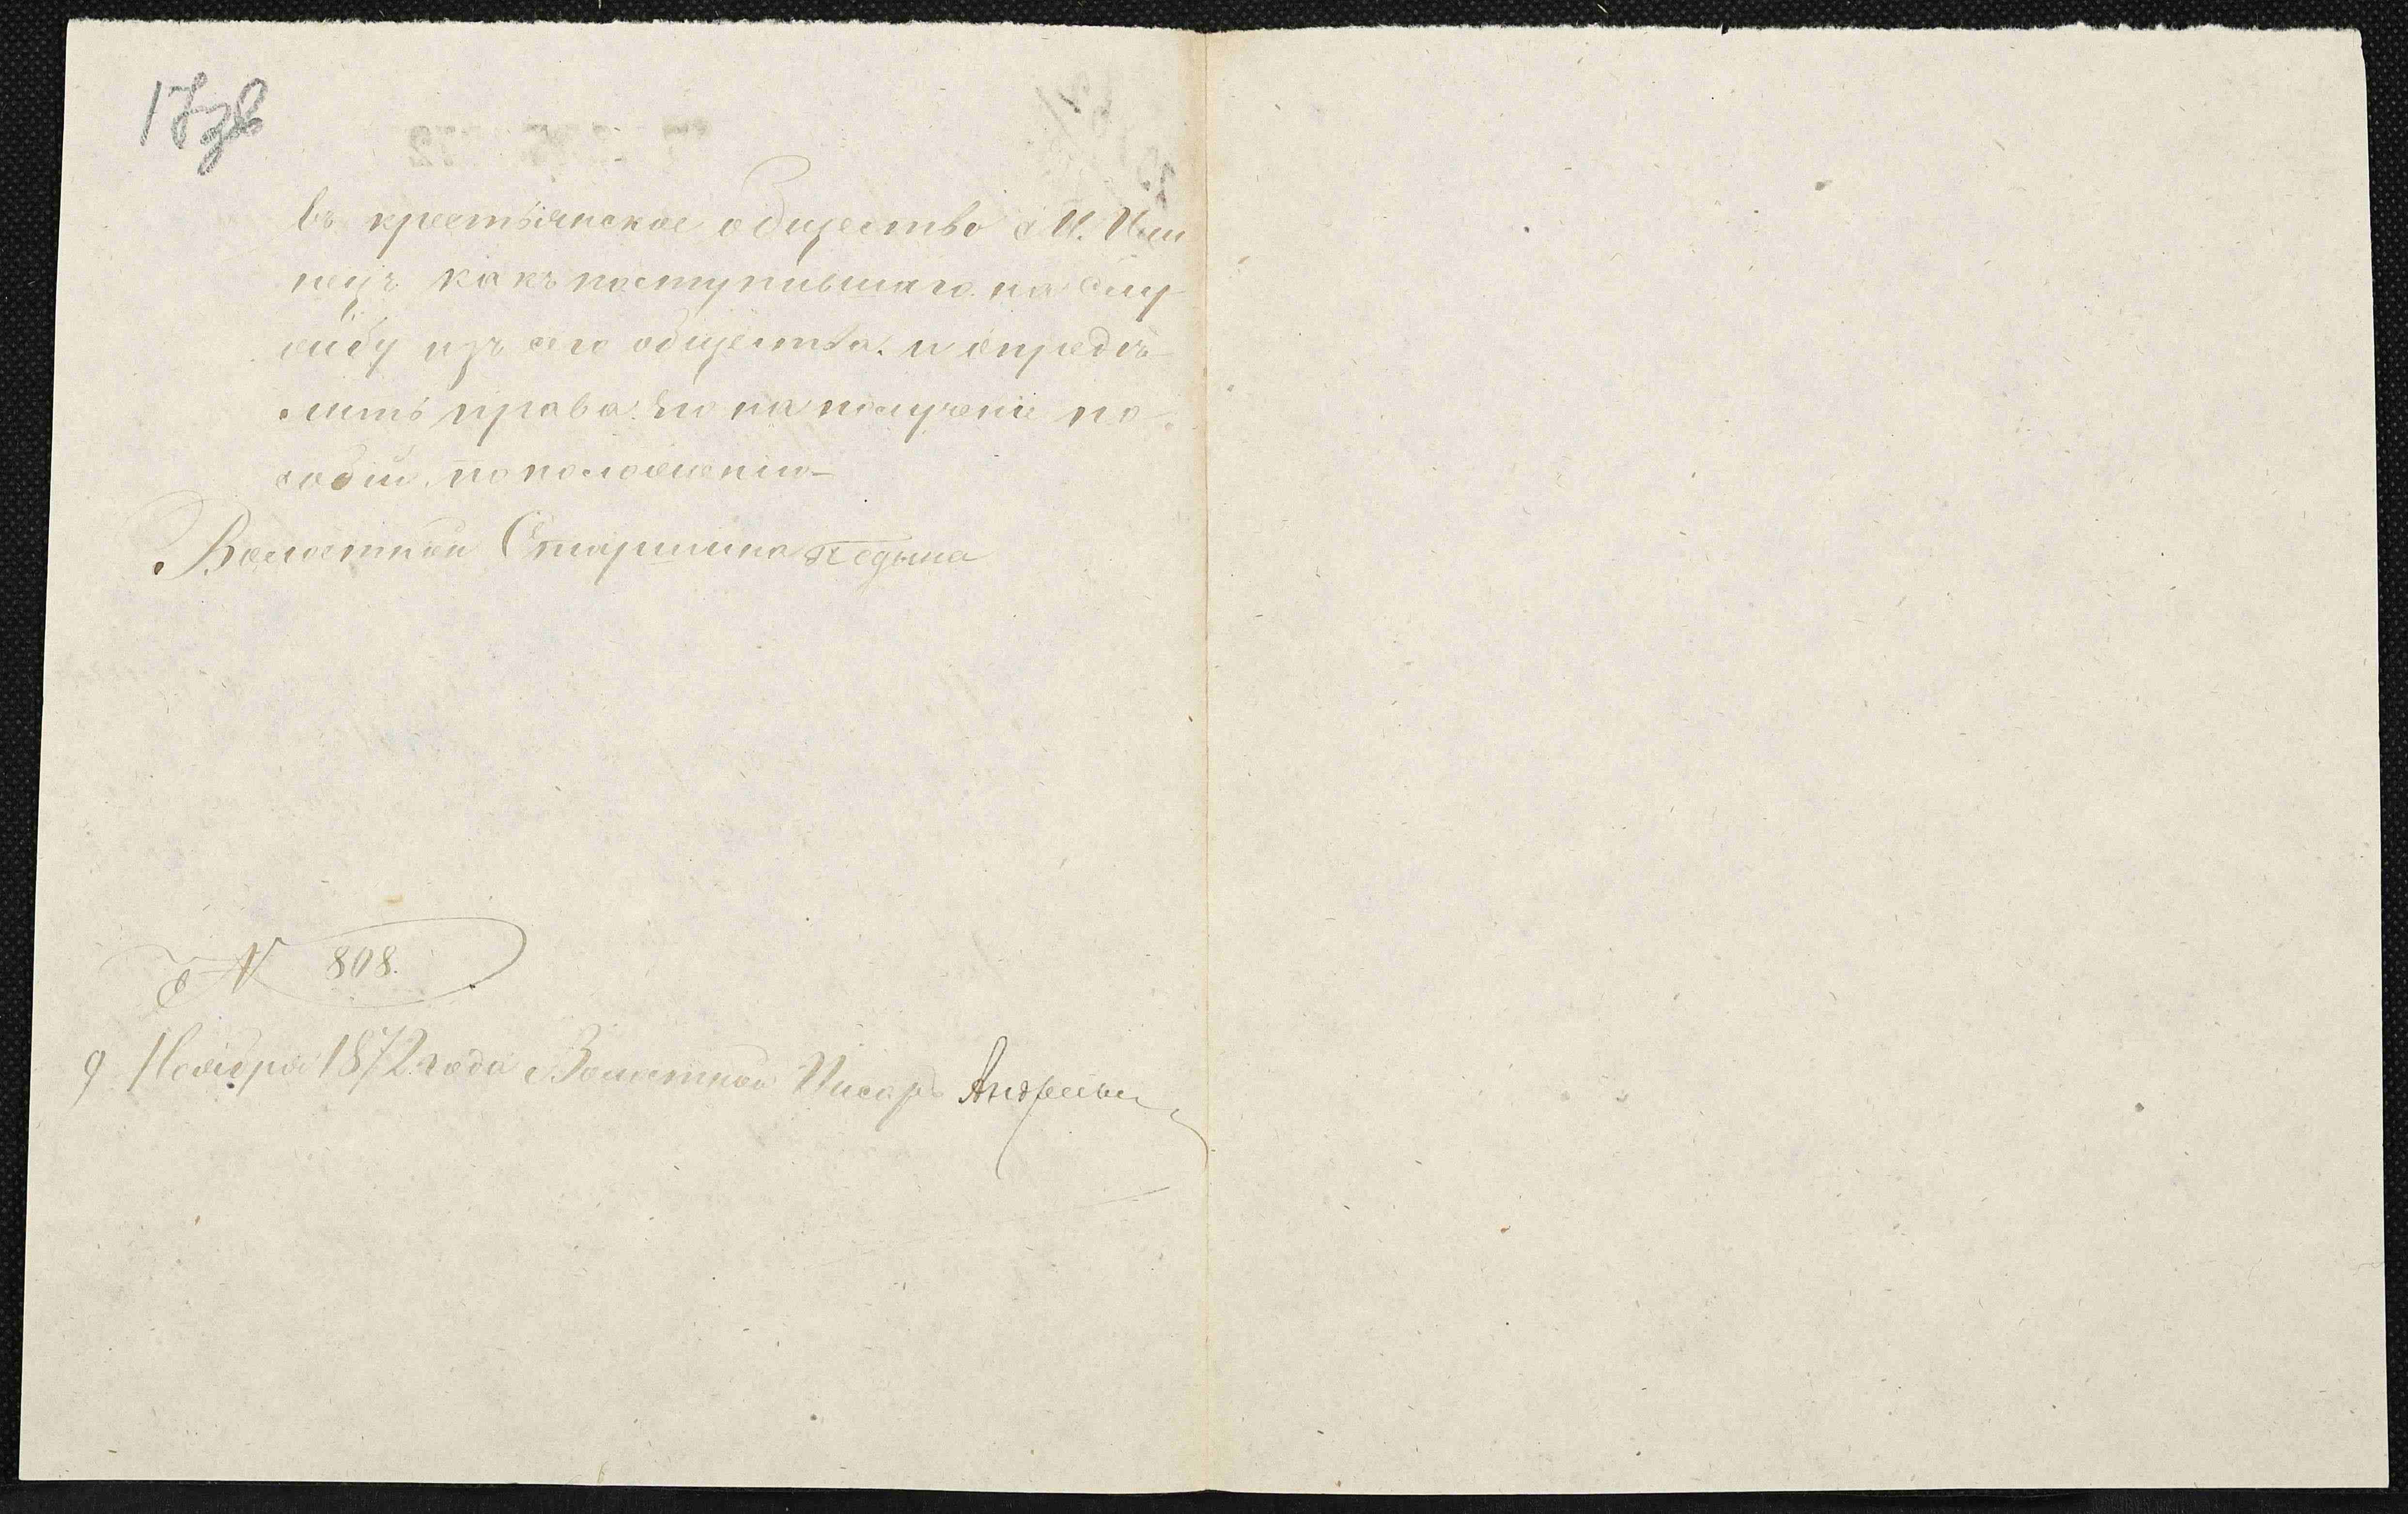 17зв
въ крестьянское общество с. И.
какъ поступившаго на слу
жбу изъ его общества. и опредѣ
лить права его на полученіе по
собій по положенію
Волостной Старшина
№ 808.
9 Ноября 1872 года Волостной Писарь Андреевъ